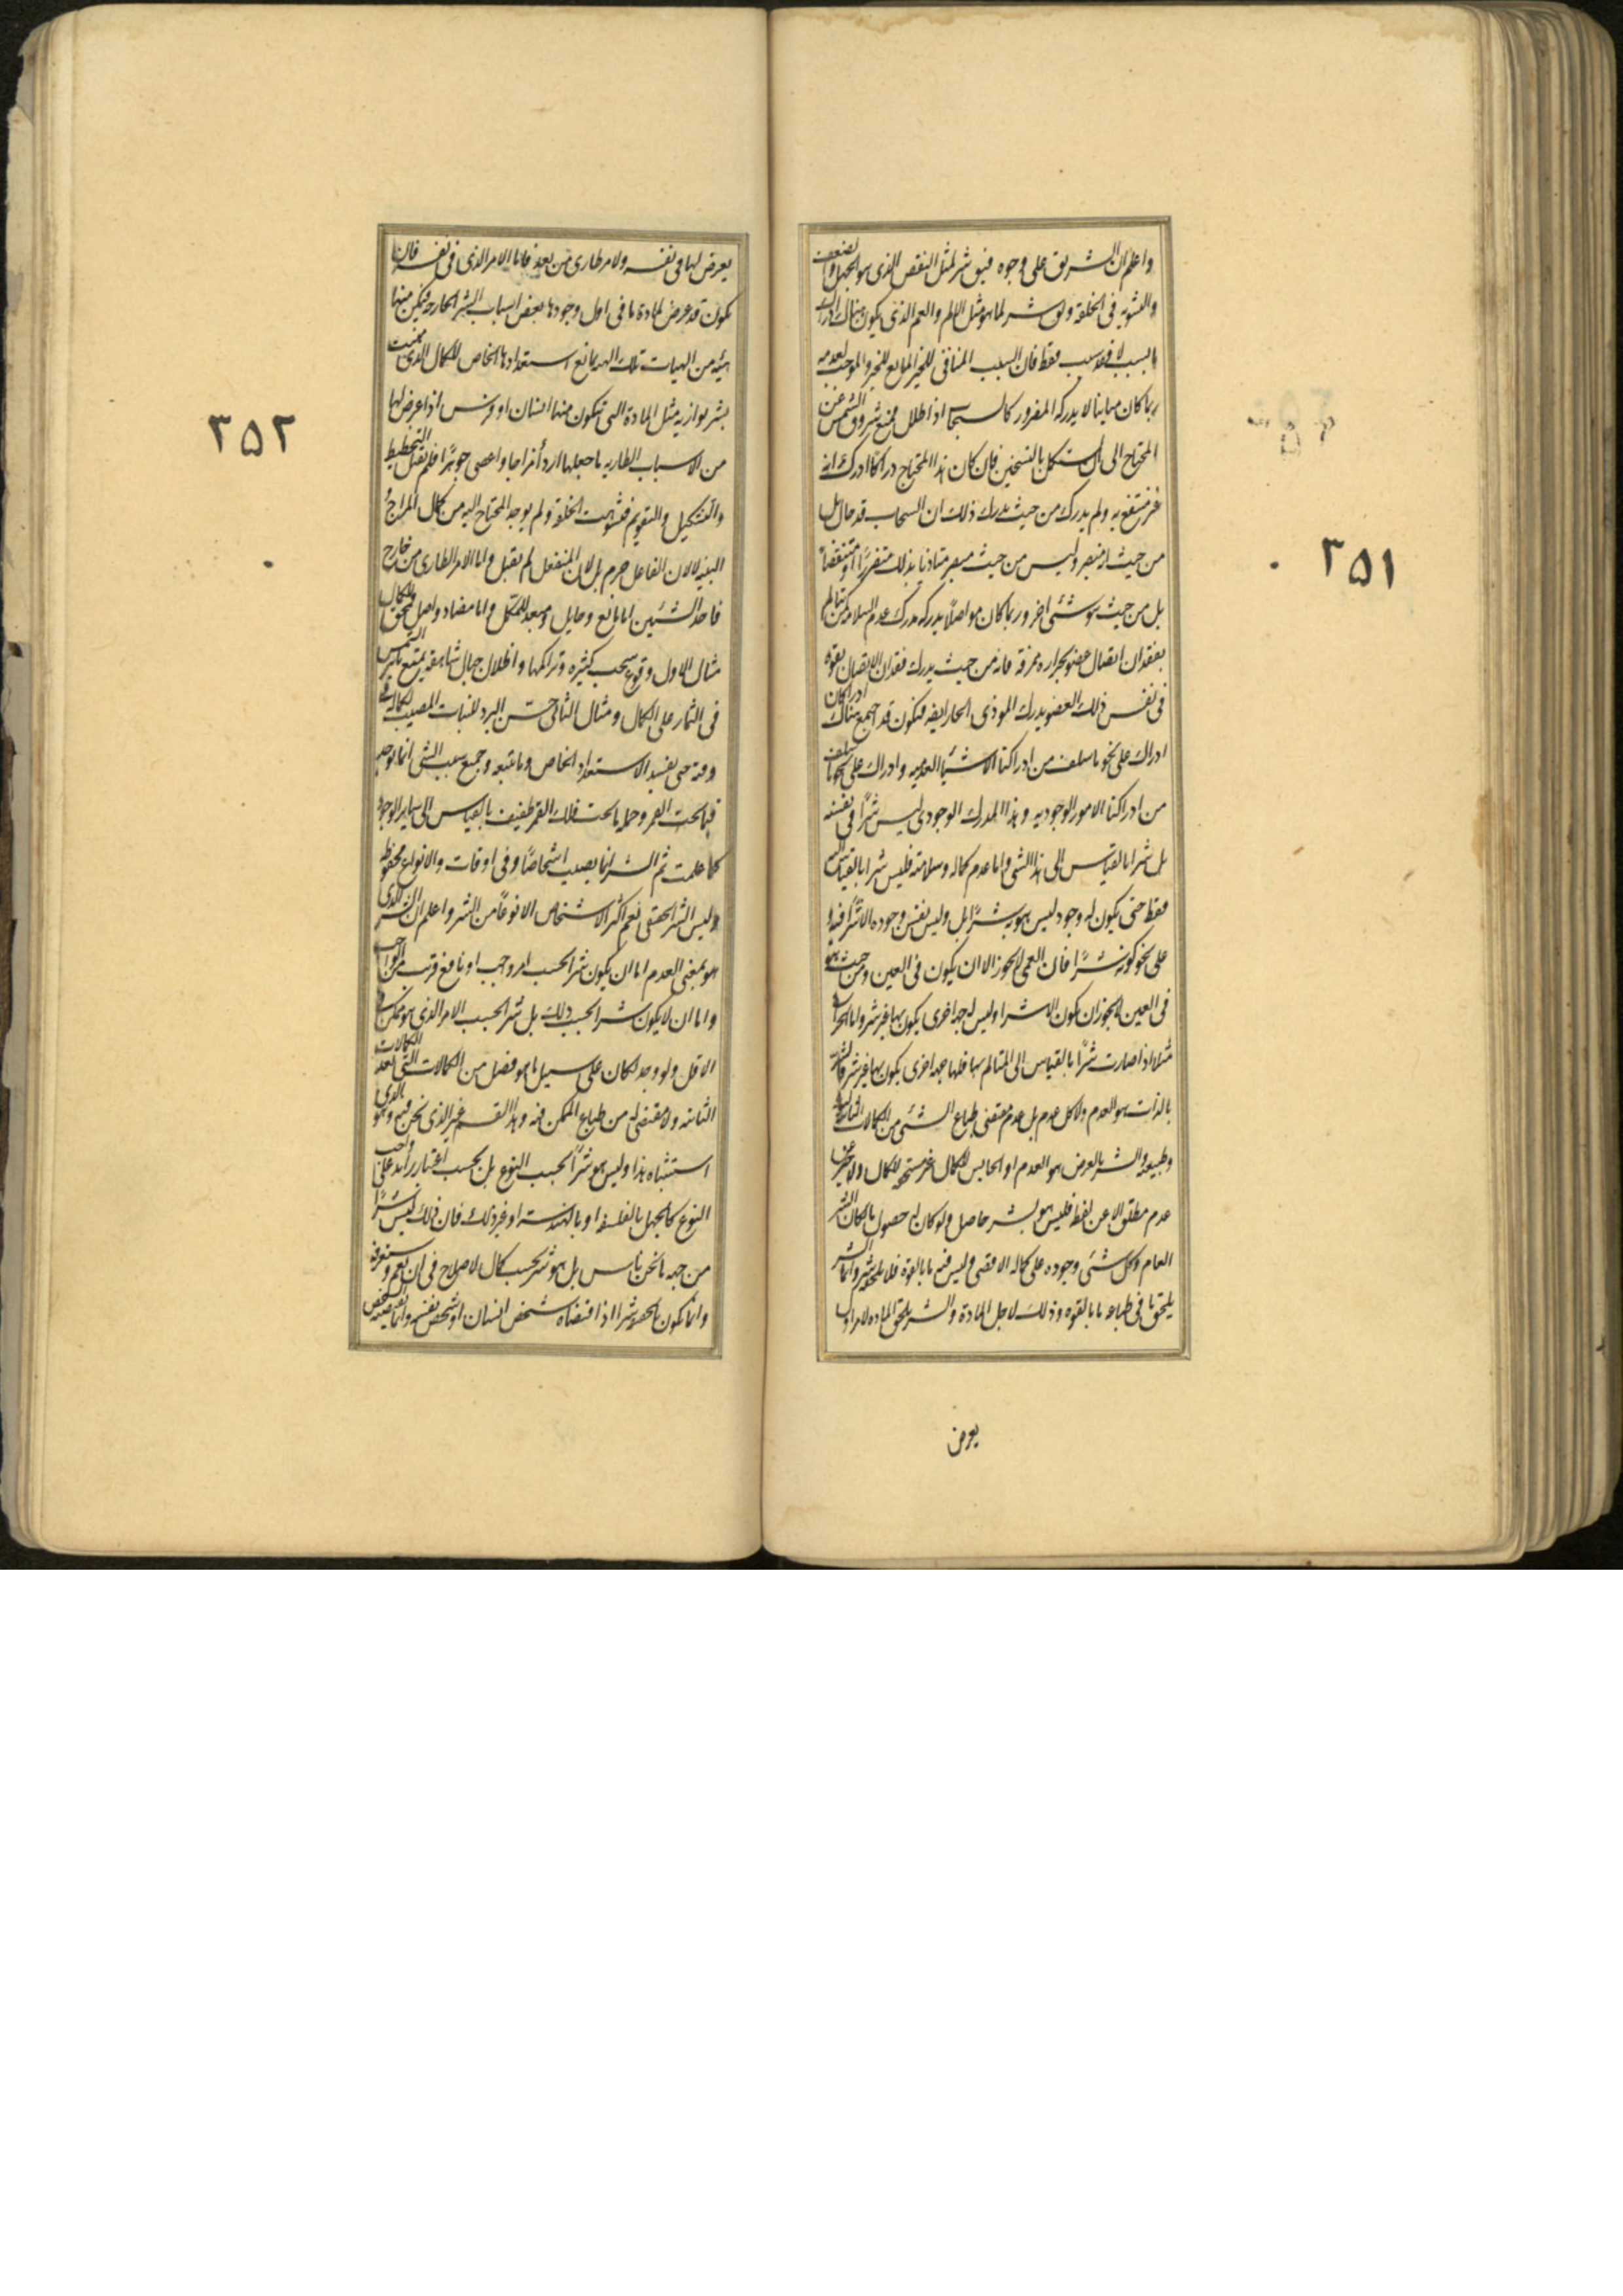 ٣٥١
واعلم ان الشر يق على وجوه فيق شر لمثل النقص الذى هو الجهل والضعف
والتشويه فى الخلقة ويق شر لما هو مثل الالم والغم الذى يكون هناك ادراك
ما بسبب لا فقد سبب فقط فان السبب المنافى للخير المانع للخير والموجب لعدمه
ربما كان مباينا لا يدركه المضرور كالسحاب اذا اظلل فمنع شروق الشمس عن
المحتاج الى ان يستكمل بالتسخين فان كان هذا المحتاج دراكا ادرك انه
غير منتفع به ولم يدرك من حيث يدرك ذلك ان السحاب قد حال بل
من حيث انه مبصر وليس من حيث هو مبصر متاذيا بذلك متضررا او منتقضا
بل من حيث هو شئ اخر وربما كان مواصلا يدركه مدرك عدم السلامة كمن يتالم
بفقدان اتصال عضو بحرارة ممزقة فانه من حيث يدرك فقدان الاتصال بقوة
فى نفس ذلك العضو يدرك الموذى الحار ايضه فيكون قد اجتمع هناك ادراكان
ادراك على نحو ما سلف من ادراكنا الاشيا العدمية وادراك على نحو ما سلف
من ادراكنا الامور الوجوديه وهذا المدرك الوجودى ليس شرا فى نفسه
بل شرا بالقياس الى هذا الشئ واما عدم كماله وسلامته فليس شرا بالقياس اليه
فقط حتى يكون له وجود ليس هو به شرا بل وليس نفس وجوده الا شرا فيه و
على نحو كونه شرا فان العمى لا يجوز الا ان يكون فى العين ومن حيث هو
فى العين لا يجوز ان يكون الا شرا وليس له جهة اخرى يكون بها غير شر واما الحرارة
مثلا اذا صارت شرا بالقياس الى المتالم بها فلها جهة اخرى يكون بها غير شر فالشر
بالذات هو العدم ولا كل عدم بل عدم مقتضى طباع الشئ من الكمالات الثابتة لنوعه
وطبيعته والشر بالعرض هو المعدم او الحابس للكمال عن مستحقه ولا خير عن
عدم مطلق الا عن لفظه فليس هو بشر حاصل ولو كان له حصول ما لكان الشر
العام وكل شئ وجوده على كماله الاقصى وليس فيه ما بالقوة فلا يلحقه شر وانما الشر
يلحق ما فى طباعه ما بالقوة وذلك لاجل المادة والشر يلحق المادة لامر اول
يعرض
٣٥٢
يعرض لها فى نفسه ولامر طارى من بعد فاما الامر الذى فى نفسه فان
يكون قد عرض لمادة ما فى اول وجودها بعض اسباب الشر الخارجة فتمكن منها
هيئة من الهيات تلك الهيه يمانع استعدادها الخاص للكمال الذى منيت
بشر يوازيه مثل المادة التى تتكون منها انسان او فرس اذا عرض لها
من الاسباب الطاريه ما جعلها اردأ مزاجا واعصى جوهرا فلم يقبل التخطيط
والتشكيل والتقويم فتشوهت الخلقة ولم يوجد المحتاج اليه من كمال المزاج و
البنيه لا لان الفاعل حرم بل لان المنفعل لم يقبل واما الامر الطارى من خارج
فاحد الشيئين اما مانع وحايل ومبعد للمكمل واما مضاد واصل ممحق للكمال
مثال الاول وقوع سحب كثيره وتراكمها واظلال جبال شاهقة يمنع تاثير الشمس
فى الثمار على الكمال ومثال الثانى حبس البرد للنبات المصيب لكماله فى
وقته حتى يفسد الاستعداد الخاص وما يتبعه وجميع سبب الشر انما يوجد
فيما تحت القمر وجملة ما تحت فلك القمر طفيف بالقياس الى ساير الوجود
كما علمت ثم الشر انما يصيب اشخاصا وفى اوقات والانواع محفوظة
وليس الشر الحقيقى يعم اكثر الاشخاص الا نوعا من الشر واعلم ان الشر الذى
هو بمعنى العدم اما ان يكون شرا بحسب امر واجب او نافع قريب من الواجب
واما ان لا يكون شرا بحسب ذلك بل شرا بحسب الامر الذى هو ممكن فى
الاقل ولو وجد لكان على سبيل ما هو فضل من الكمالات التى بعد الكمالات
الثانية ولا مقتضى له من طباع الممكن فيه وهذا القسم غير الذى نحن فيه وهو الذى
استثنيناه هذا وليس هو شرا بحسب النوع بل بحسب اعتبار زايد على واجب
النوع كالجهل بالفلسفة او بالهندسة او غير ذلك فان ذلك ليس شرا
من جهة ما نحن ناس بل هو شر بحسب كمال لاصلاح فى ان يعم وستعرفه
وانما يكون بالحقيقة شرا اذا اقتضاه شخص انسان او شخص نفسه وانما يقتضيه الشخص